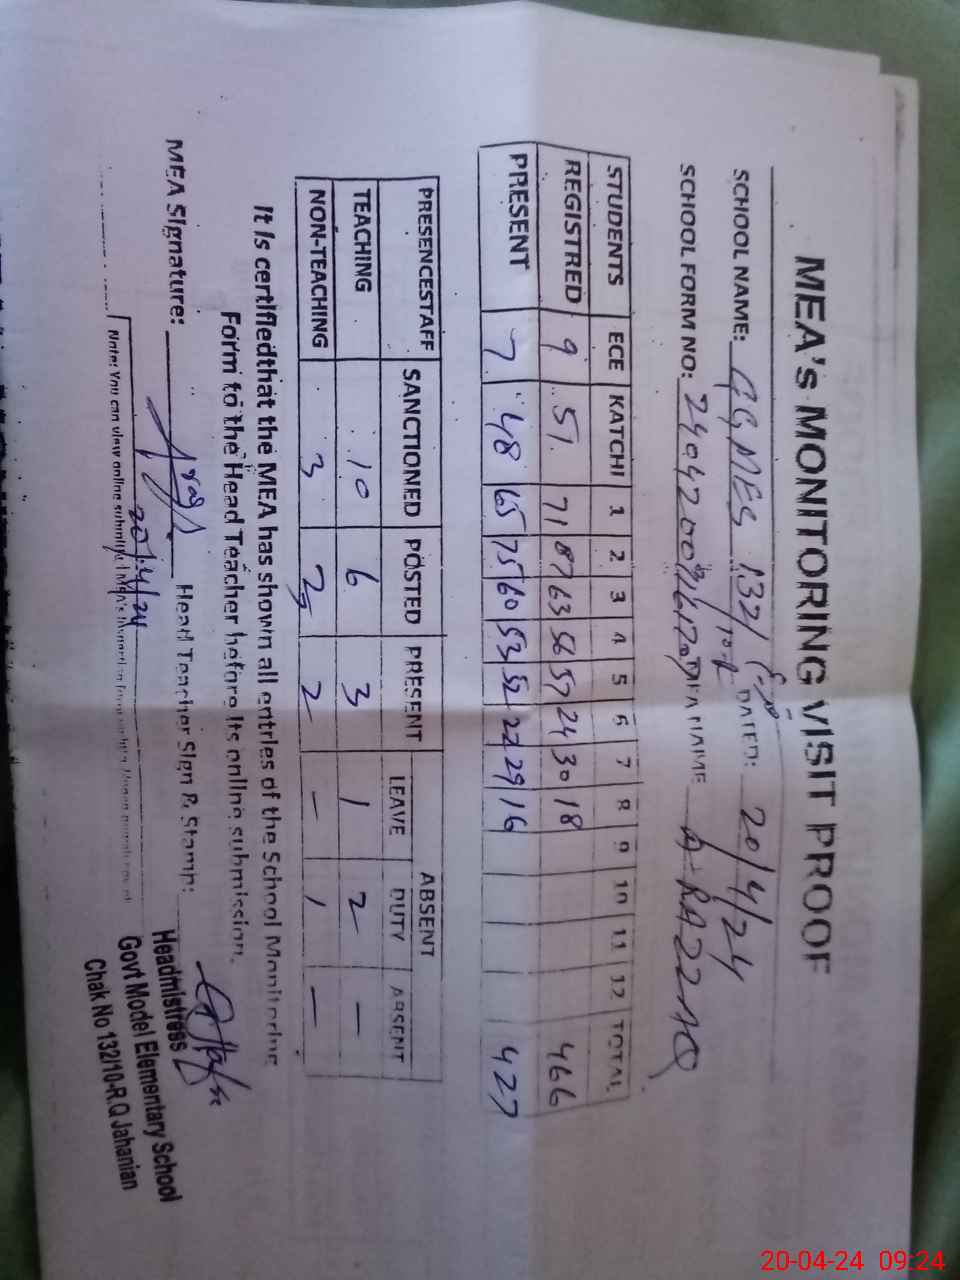 MEA's MONITORING VISIT PROOF
SCHOOL NAME: GGMES 132/10-R DATED: 20/4/24
SCHOOL FORM NO: NAME A-RAZZAQ
STUDENTS ECE KATCHI 1 2 3 4 5 6 7 8 9 10 11 12 TOTAL
REGISTRED 9 51 71 87 63 56 57 24 30 18 466
PRESENT 7 48 65 75 60 53 52 22 29 16 427
PRESENCESTAFF SANCTIONED POSTED PRESENT ABSENT
LEAVE DUTY ABSENT
TEACHING 10 6 3 1 2 —
NON-TEACHING 3 2 2 — 1 —
It is certifiedthat the MEA has shown all entries of the School Monitoring
Form to the Head Teacher before its online submission.
MEA Signature: Head Teacher Sign & Stamp:
20/4/24
Headmistress
Govt Model Elementary School
Chak No 132/10-R.Q Jahanian
Note: You can view online submitted MEA's
20-04-24 09:24